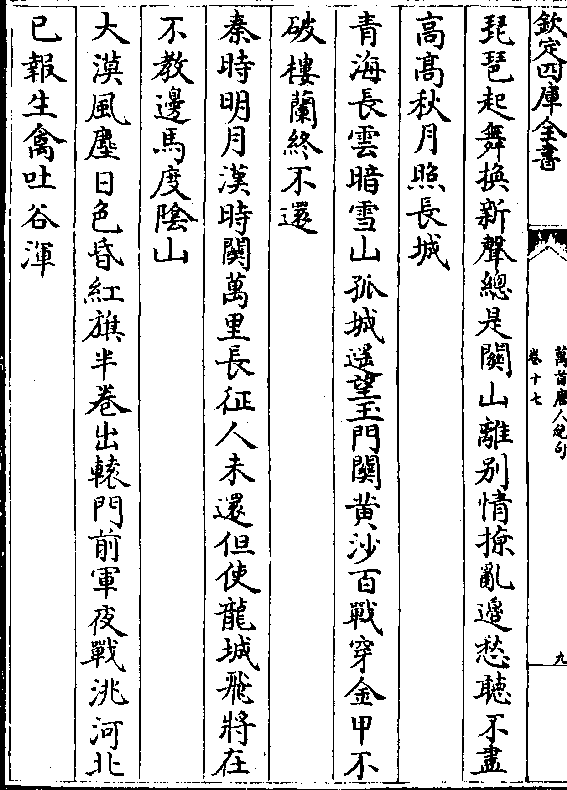 欽定四庫全書
萬首唐人絶句
卷十七
九
琵琶起舞換新聲總是關山離别情撩亂邊愁聽不盡
高高秋月照長城
青海長雲暗雪山孤城遥望玉門關黄沙百戰穿金甲不
破樓蘭終不還
秦時明月漢時關萬里長征人未還但使龍城飛將在
不教邊馬度陰山
大漠風塵日色昏紅旗半卷出轅門前軍夜戰洮河北
已報生禽吐谷渾